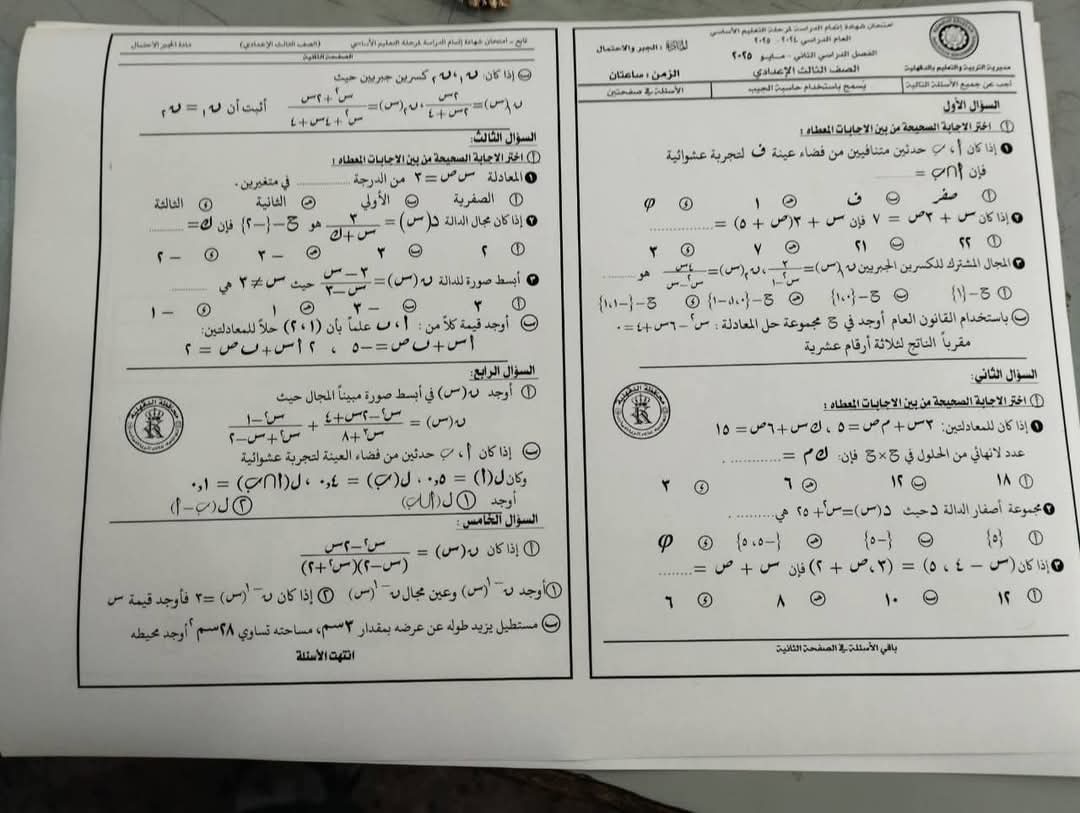 امتحان شهادة إتمام الدراسة لمرحلة التعليم الأساسي
العام الدراسي ٢٠٢٤ - ٢٠٢٥
الفصل الدراسي الثاني - مايو ٢٠٢٥
المادة: الجبر والاحتمال
مديرية التربية والتعليم بالدقهلية
الصف الثالث الإعدادي
الزمن: ساعتان
أجب عن جميع الأسئلة التالية
يُسمح باستخدام حاسبة الجيب
الأسئلة في صفحتين
السؤال الأول
أ اختر الاجابة الصحيحة من بين الاجابات المعطاه :
١ إذا كان أ ، ب حدثين متنافيين من فضاء عينة ف لتجربة عشوائية
فإن أ∩ب = ..........
أ صفر ب ف ج ١ د φ
٢ إذا كان س + ٣ص = ٧ فإن س + ٣(ص + ٥) = ..........
أ ٢٢ ب ٢١ ج ٧ د ٣
٣ المجال المشترك للكسرين الجبريين ن١(س)= ٢/(س٢-١) ، ن٢(س)= ٤س/(س٢-س) هو ........
أ ح-{١} ب ح-{١،٠} ج ح-{١،٠،-١} د ح-{-١،١}
ب باستخدام القانون العام أوجد في ح مجموعة حل المعادلة : س٢-٦س+٤=٠
مقرباً الناتج لثلاثة أرقام عشرية
السؤال الثاني:
أ اختر الاجابة الصحيحة من بين الاجابات المعطاه :
١ إذا كان للمعادلتين: ٣س+م ص=٥ ، ك س+٦ص=١٥
عدد لانهائي من الحلول في ح×ح فإن: ك م = ..........
أ ١٨ ب ١٢ ج ٦ د ٣
٢ مجموعة أصفار الدالة د حيث د(س)=س٢+٢٥ هي ........
أ {٥} ب {-٥} ج {-٥،٥} د φ
٣ إذا كان (س - ٤ ، ٥) = (٣ ، ص + ٢) فإن س + ص = .......
أ ١٢ ب ١٠ ج ٨ د ٦
باقي الأسئلة في الصفحة الثانية
تابع - امتحان شهادة إتمام الدراسة لمرحلة التعليم الأساسي (الصف الثالث الإعدادي) مادة الجبر الاحتمال
الصفحة الثانية
ب إذا كان: ن١ ، ن٢ كسرين جبريين حيث
ن١(س)= ٢س/(٢س+٤) ، ن٢(س)= (س٢+٢س)/(س٢+٤س+٤) أثبت أن ن١ = ن٢
السؤال الثالث:
أ اختر الاجابة الصحيحة من بين الاجابات المعطاه :
١ المعادلة س ص = ٣ من الدرجة .......... في متغيرين.
أ الصفرية ب الأولي ج الثانية د الثالثة
٢ إذا كان مجال الدالة د(س) = ٣/(س+ك) هو ح-{-٢} فإن ك= ........
أ ٢ ب ٣ ج -٣ د -٢
٣ أبسط صورة للدالة ن(س) = (٣-س)/(س-٣) حيث س ≠ ٣ هي ........
أ ٣ ب -٣ ج ١ د -١
ب أوجد قيمة كلاً من: أ ، ب علماً بأن (١،٢) حلاً للمعادلتين:
أ س + ب ص = -٥ ، ٢ أ س + ب ص = ٢
السؤال الرابع:
أ أوجد ن(س) في أبسط صورة مبيناً المجال حيث
ن(س) = (س٢-٢س+٤)/(س٣+٨) + (س٢-١)/(س٢+س-٢)
ب إذا كان أ ، ب حدثين من فضاء العينة لتجربة عشوائية
وكان ل(أ) = ٠,٥ ، ل(ب) = ٠,٤ ، ل(أ∩ب) = ٠,١
أوجد ١ ل(أ∪ب) ٢ ل(ب-أ)
السؤال الخامس:
أ إذا كان ن(س) = (س٢-٢س)/((س-٢)(س٢+٢))
١ أوجد ن-١(س) وعين مجال ن-١(س) ٢ إذا كان ن-١(س) =٣ فأوجد قيمة س
ب مستطيل يزيد طوله عن عرضه بمقدار ٣سم، مساحته تساوي ٢٨سم٢ أوجد محيطه
انتهت الأسئلة